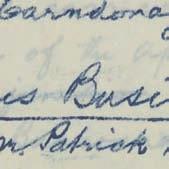 Carndona
is Busi
Mr. Patrick